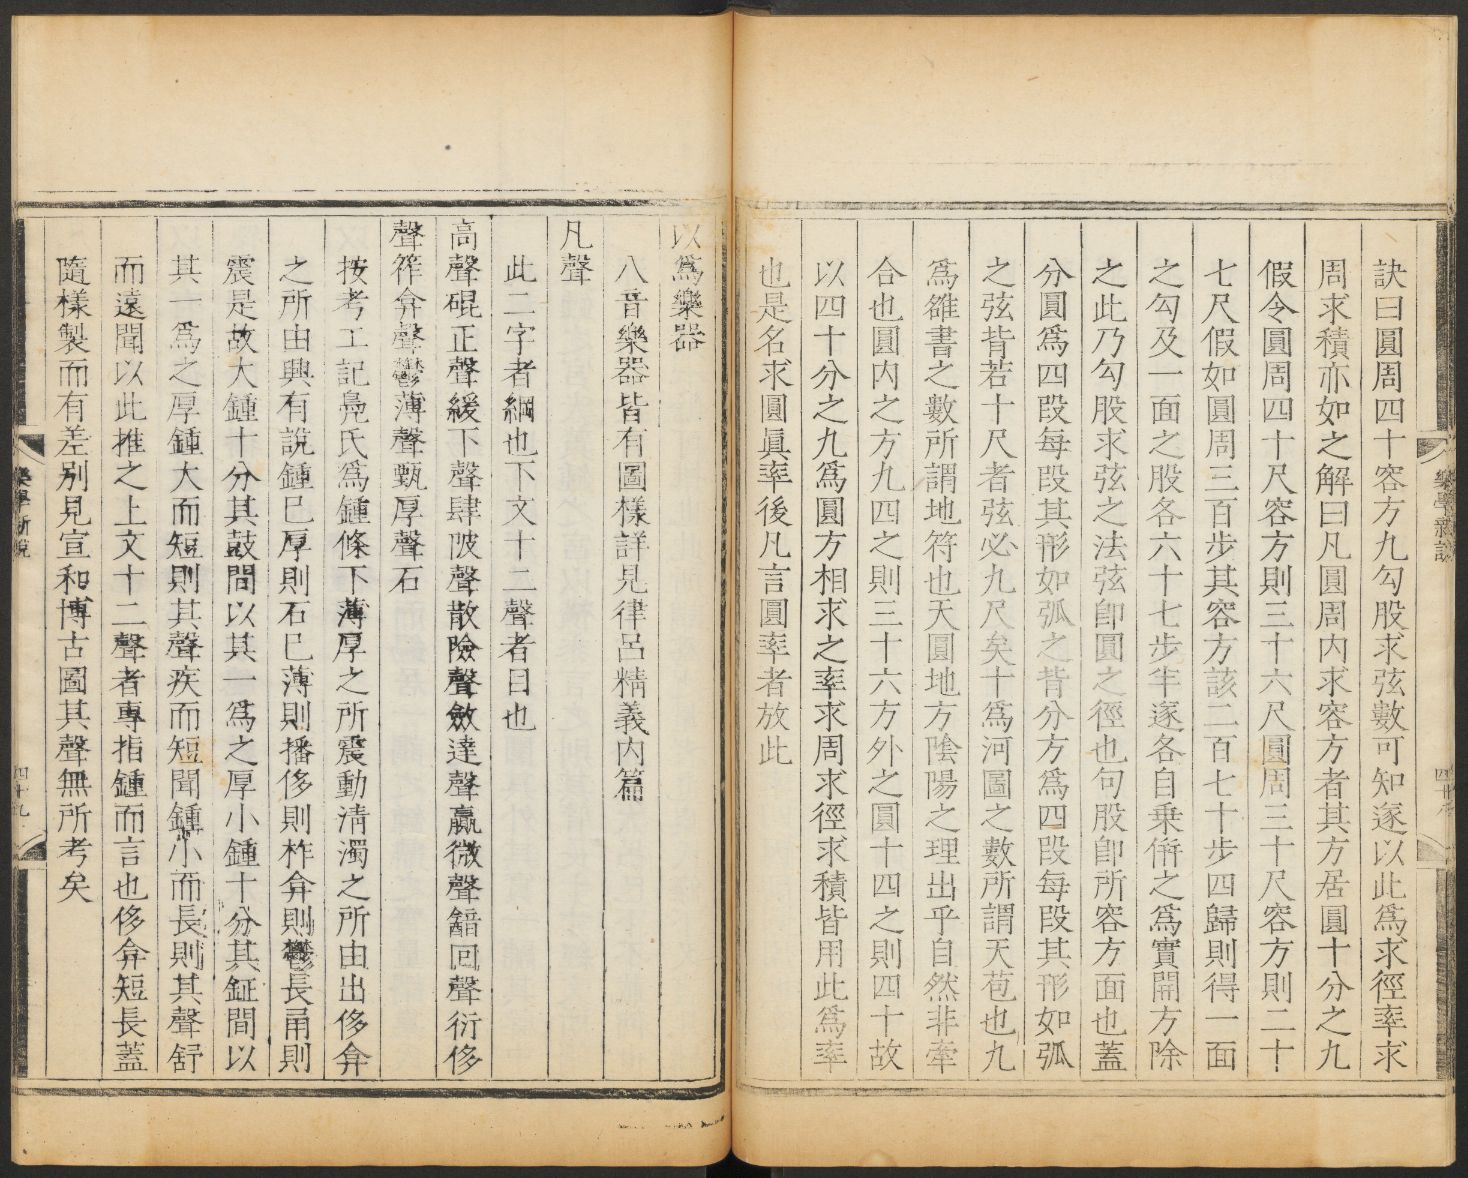 訣曰圓周四十容方九勾股求弦數可知逐以此爲求徑率求
周求積亦如之解曰凡圓周內求容方者其方居圓十分之九
假令圓周四十尺容方則三十六尺圓周三十尺容方則二十
七尺假如圓周三百步其容方該二百七十步四歸則得一面
之勾及一面之股各六十七步半逐各自乗倂之爲實開方除
之此乃勾股求弦之法弦卽圓之徑也句股卽所容方面也蓋
分圓爲四段每段其形如弧之背分方爲四段每段其形如弧
之弦背若十尺者弦必九尺矣十爲河圖之數所謂天苞也九
爲雒書之數所謂地符也天圓地方陰陽之理出乎自然非牽
合也圓內之方九四之則三十六方外之圓十四之則四十故
以四十分之九爲圓方相求之率求周求徑求積皆用此爲率
也是名求圓眞率後凡言圓率者放此
樂學新說
以爲樂器
八音樂器皆有圖樣詳見律呂精義內篇
凡聲
此二字者綱也下文十二聲者目也
高聲䃂正聲緩下聲肆陂聲散險聲斂達聲贏微聲韽回聲衍侈
聲筰弇聲鬱薄聲甄厚聲石
按考工記鳧氏爲鍾條下薄厚之所震動淸濁之所由出侈弇
之所由興有說鍾巳厚則石巳薄則播侈則柞弇則鬱長甬則
震是故大鍾十分其鼓間以其一爲之厚小鍾十分其鉦間以
其一爲之厚鍾大而短則其聲疾而短聞鍾小而長則其聲舒
而遠聞以此推之上文十二聲者專指鍾而言也侈弇短長蓋
隨樣製而有差别見宣和博古圖其聲無所考矣
樂學新說
四十九